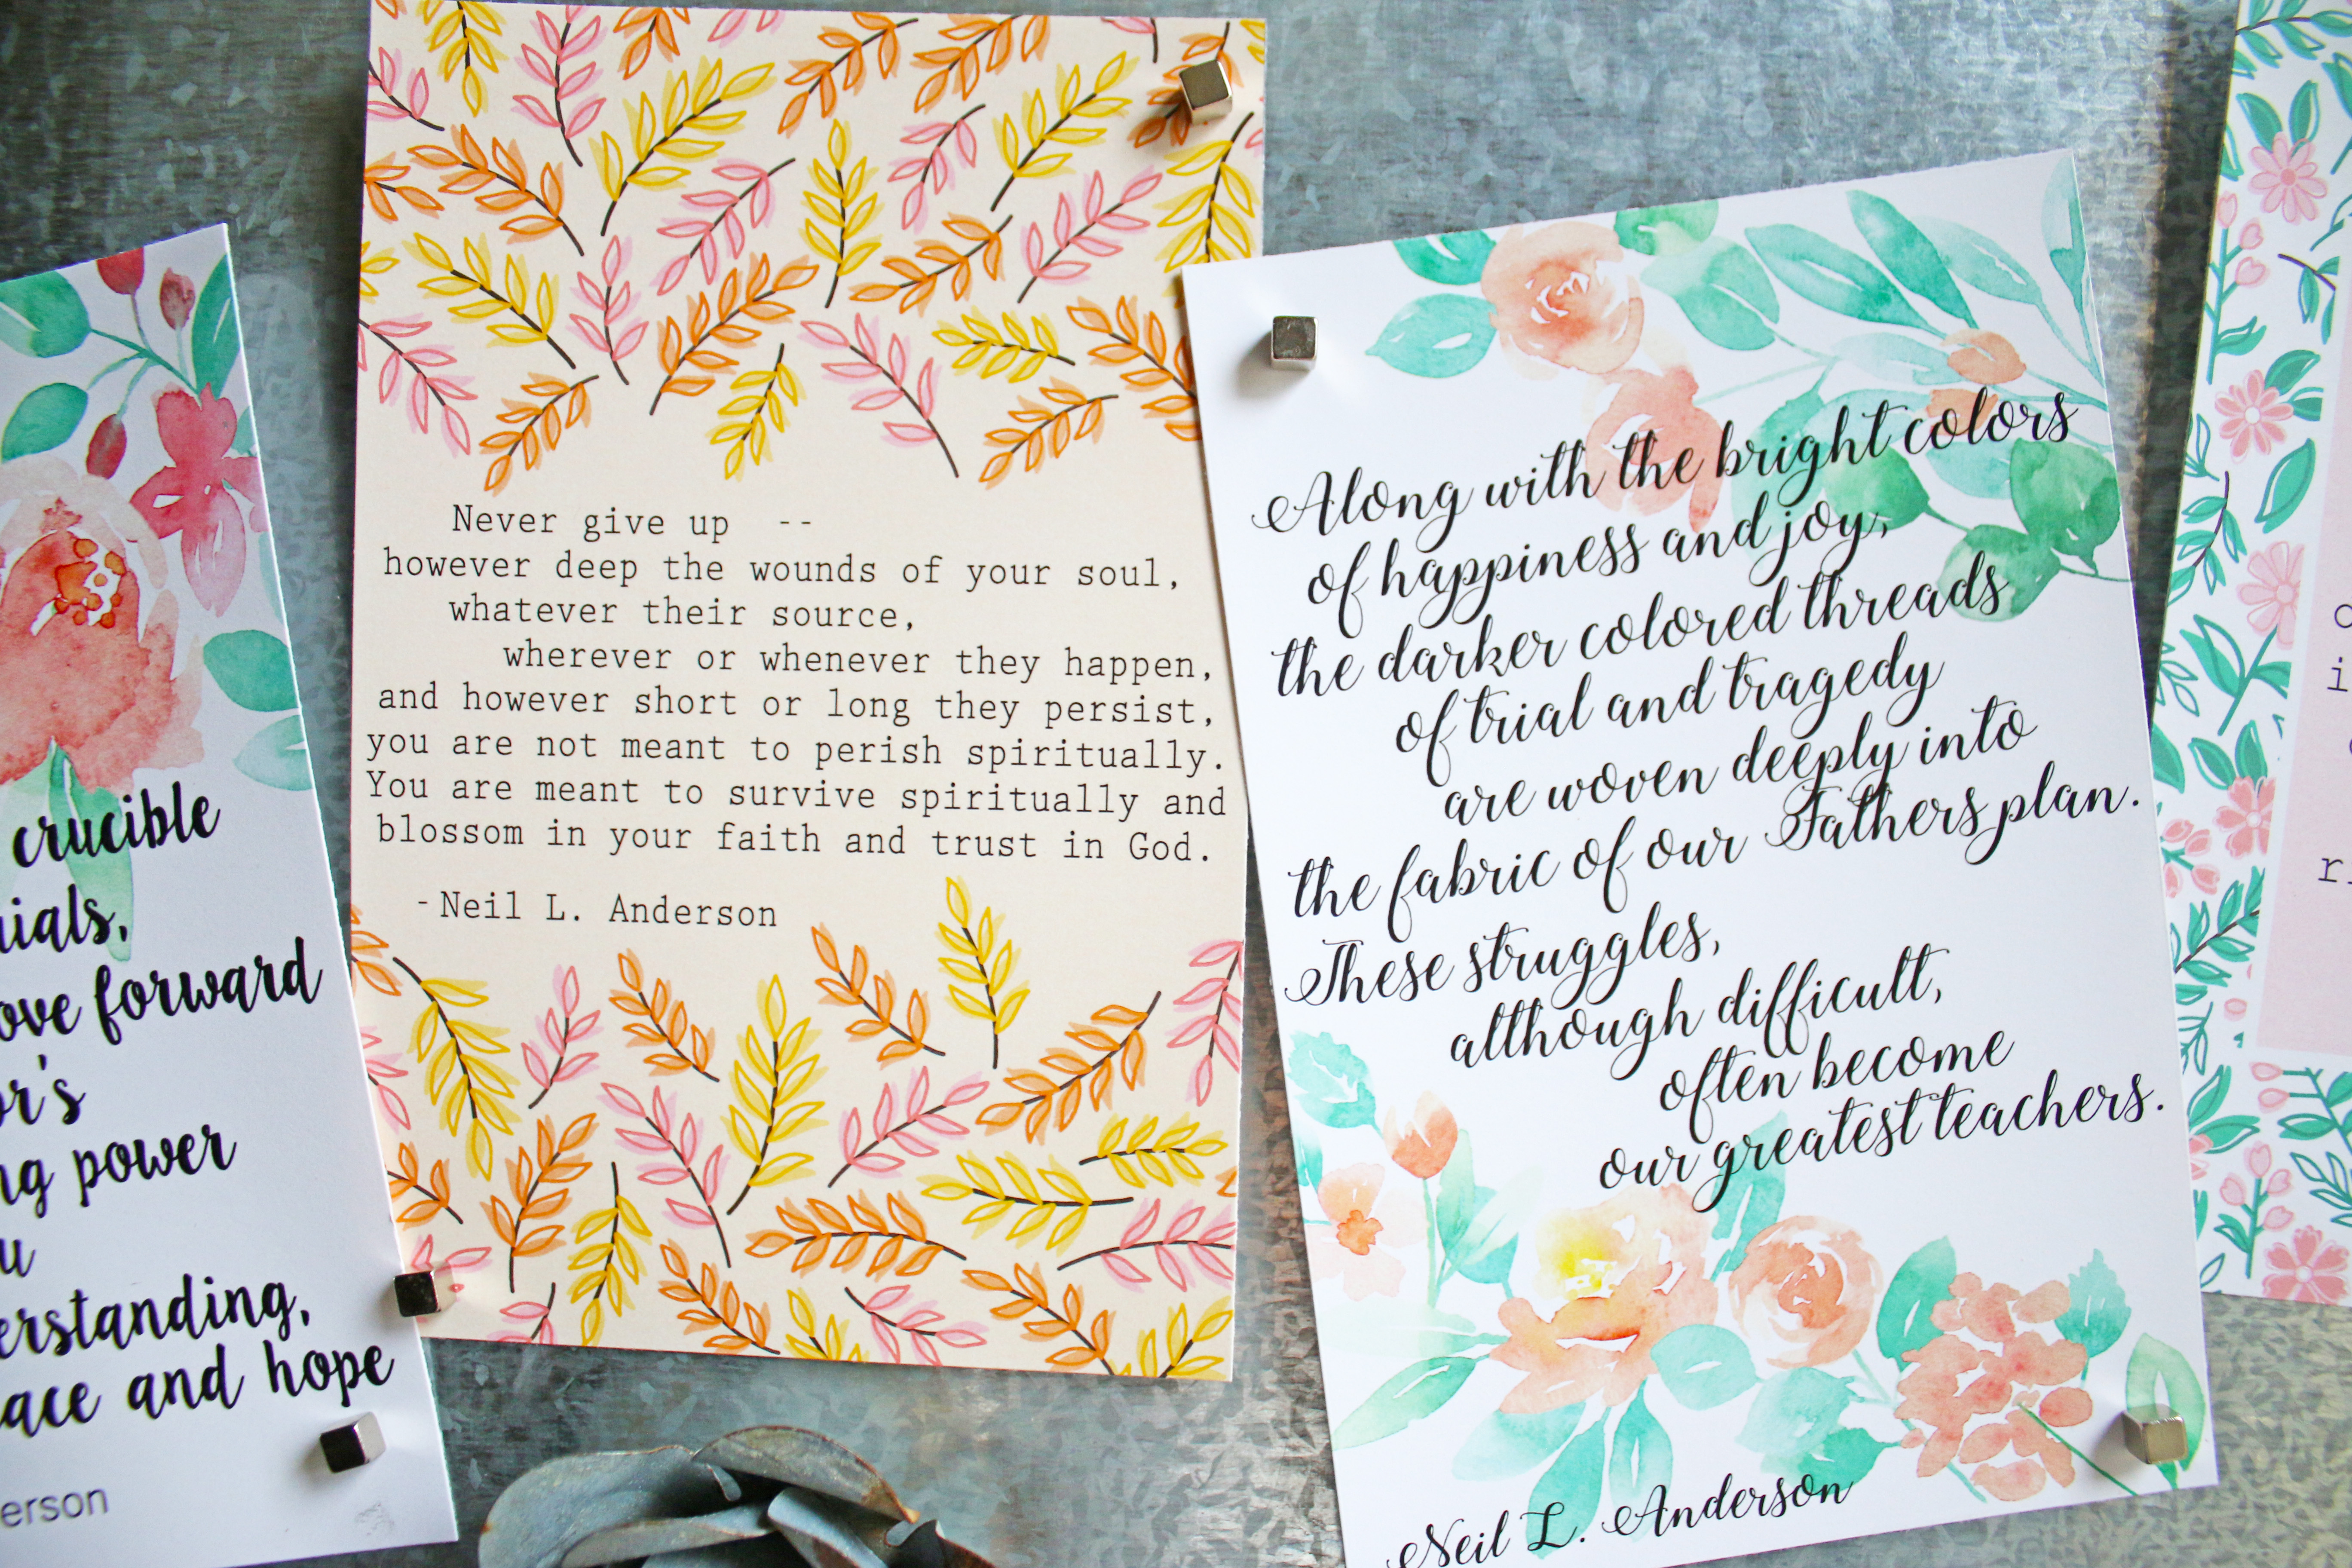 crucible
forward
power
and hope
Never give up --
however deep the wounds of your soul,
whatever their source,
wherever or whenever they happen,
and however short or long they persist,
you are not meant to perish spiritually.
You are meant to survive spiritually and
blossom in your faith and trust in God.
-Neil L. Anderson
Along with the bright colors
of happiness and joy,
the darker colored threads
of trial and tragedy
are woven deeply into
the fabric of our Fathers plan.
These struggles,
although difficult,
often become
our greatest teachers.
Neil L. Anderson